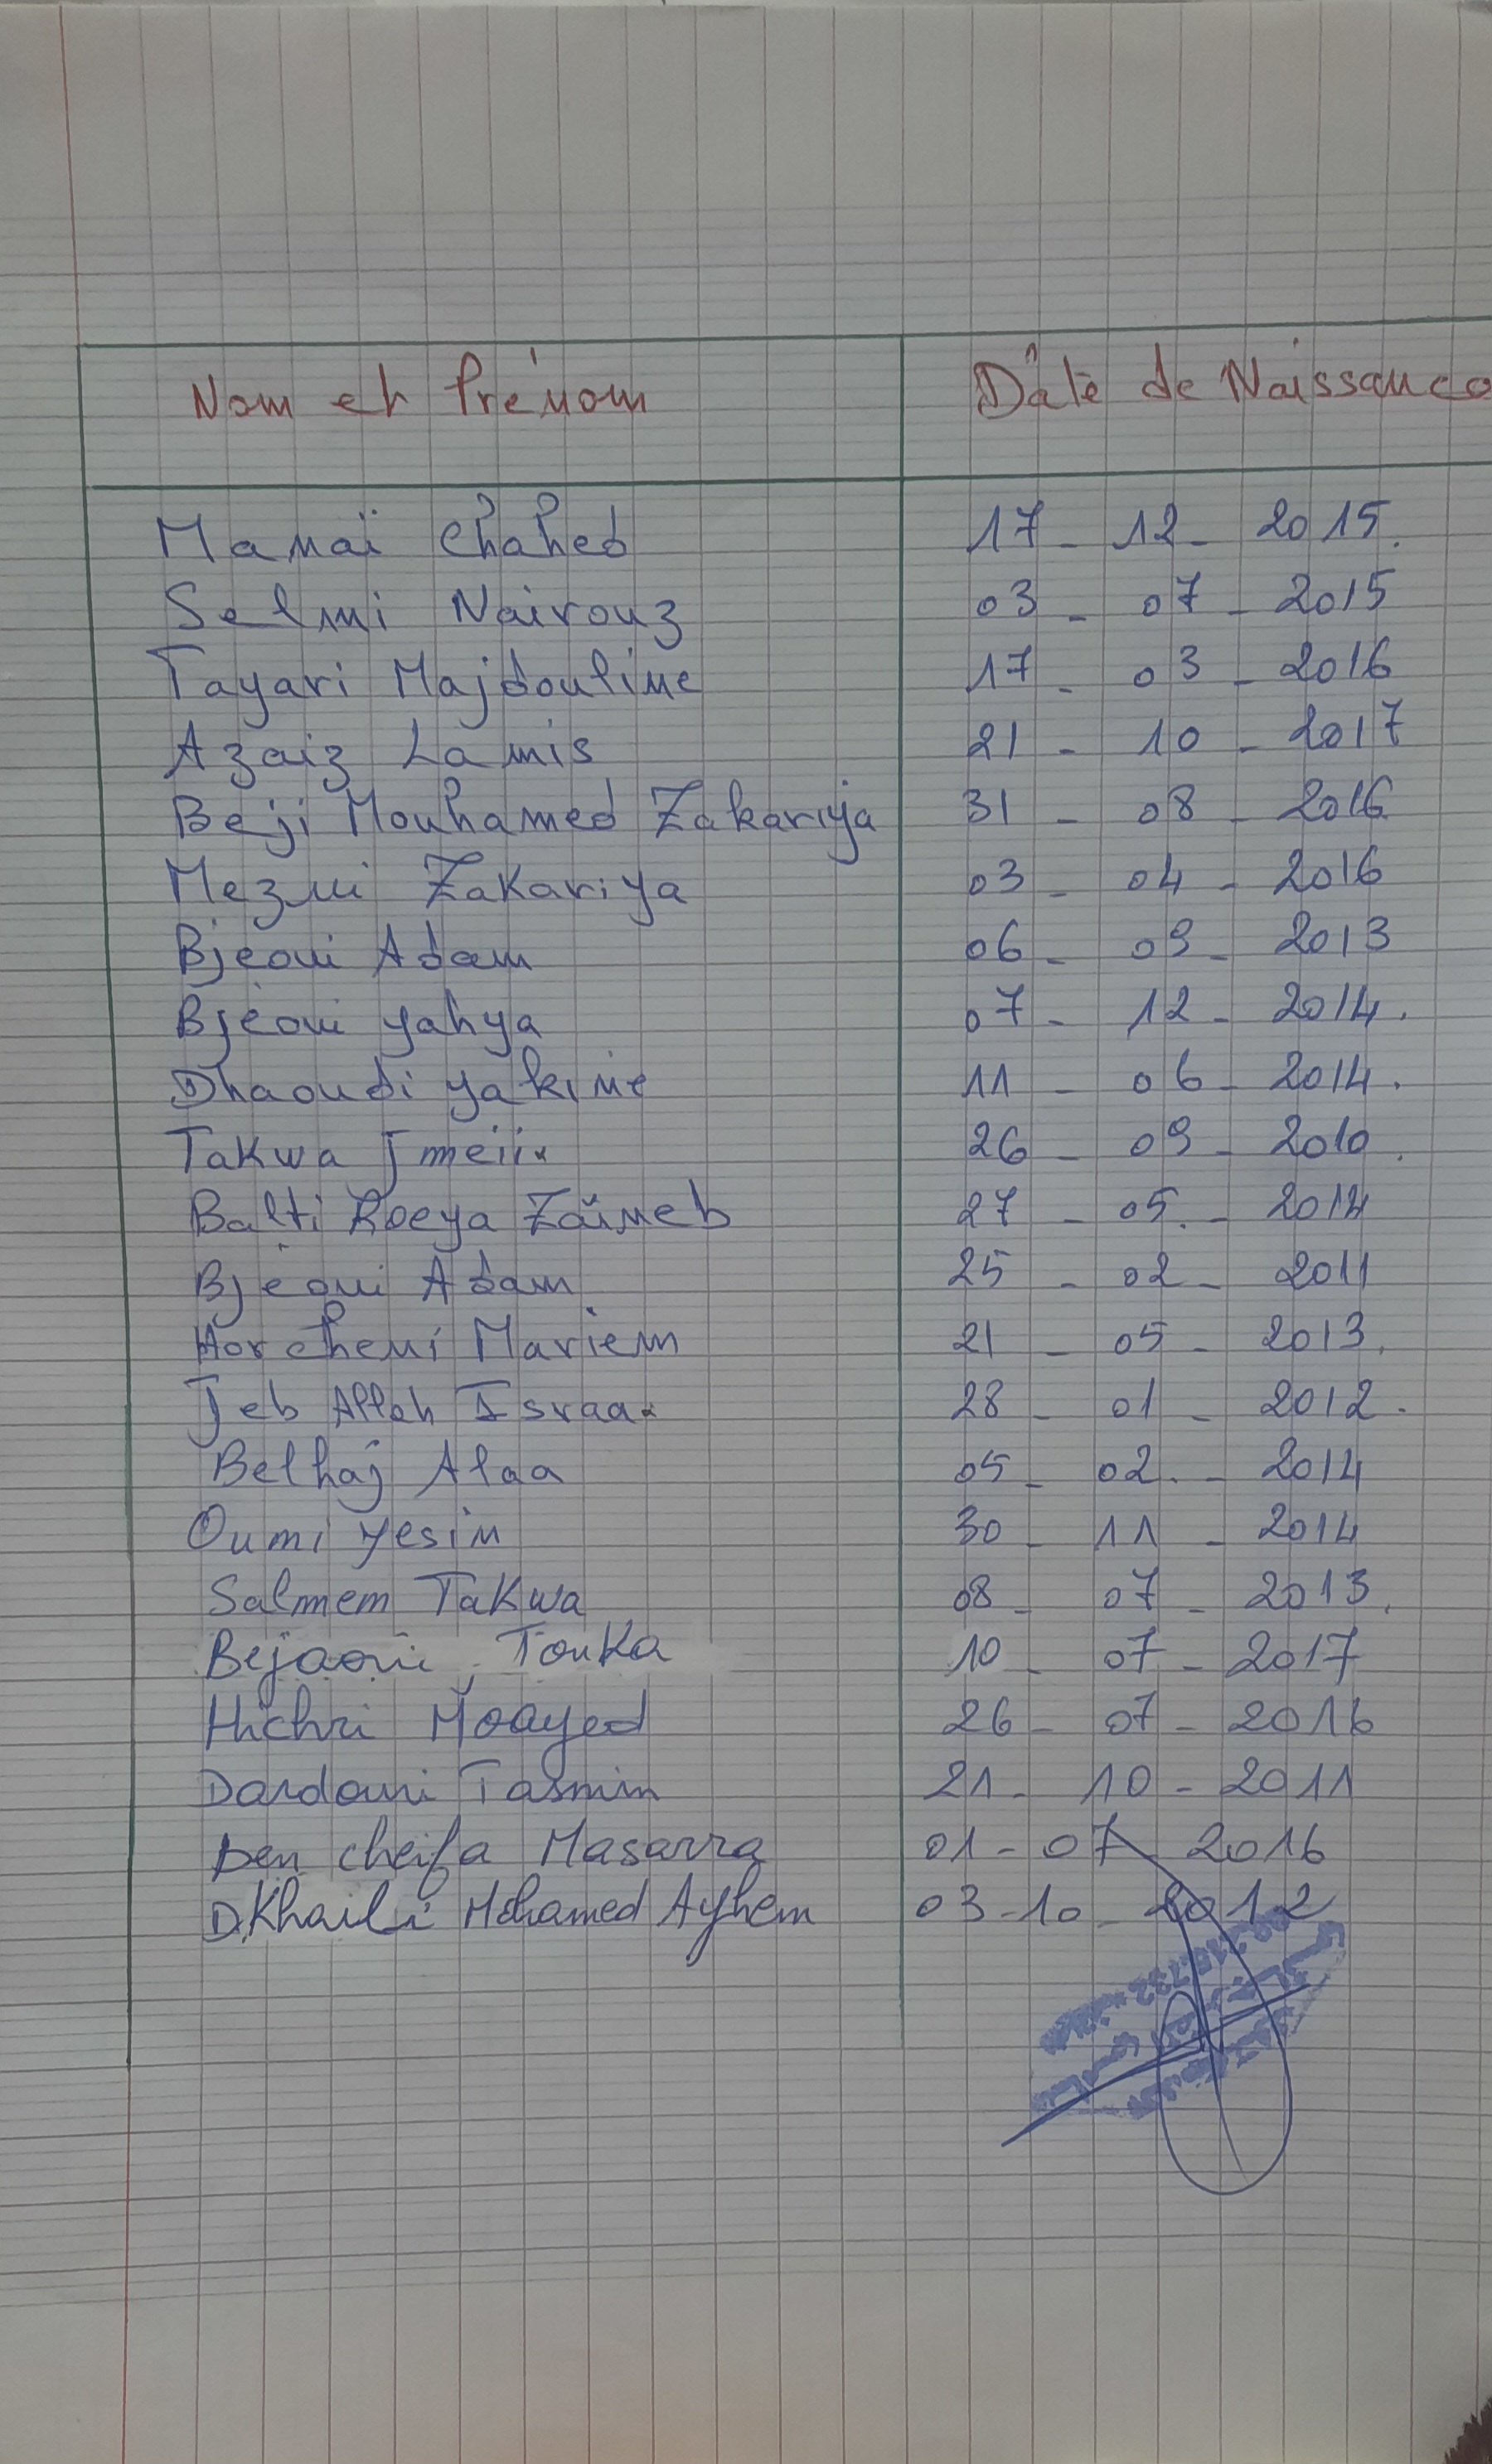 Nom et Prénom Dâte de Naissance
Manaï Chahed 17 - 12 - 2015.
Selmi Nairouz 03 - 07 - 2015
Tayari Majdouline 17 - 03 - 2016
Azaiz Lamis 21 - 10 - 2017
Beji Mouhamed Zakariya 31 - 08 - 2016
Mezni Zakariya 03 - 04 - 2016
Bjeoui Adam 06 - 09 - 2013
Bjéoui yahya 07 - 12 - 2014.
Dhaoudi yakine 11 - 06 - 2014.
Takwa 26 - 09 - 2010.
Balti Roeya Zaïneb 27 - 05. - 2014
Bjéoui Adam 25 - 02 - 2011
Horcheni Mariem 21 - 05 - 2013.
Jeb Allah Israa 28 - 01 - 2012.
Belhaj Alaa 05 - 02. - 2014
Oumi yesin 30 - 11 - 2014
Salmem Takwa 08 - 07 - 2013.
Bejaoui Touka 10 - 07 - 2017
Hichri Moayed 26 - 07 - 2016
Dardouri Tasmin 21 - 10 - 2011
Ben cheifa Masarra 01 - 07 2016
D.Khaili Mohamed Ayhem 03 - 10 - 2012